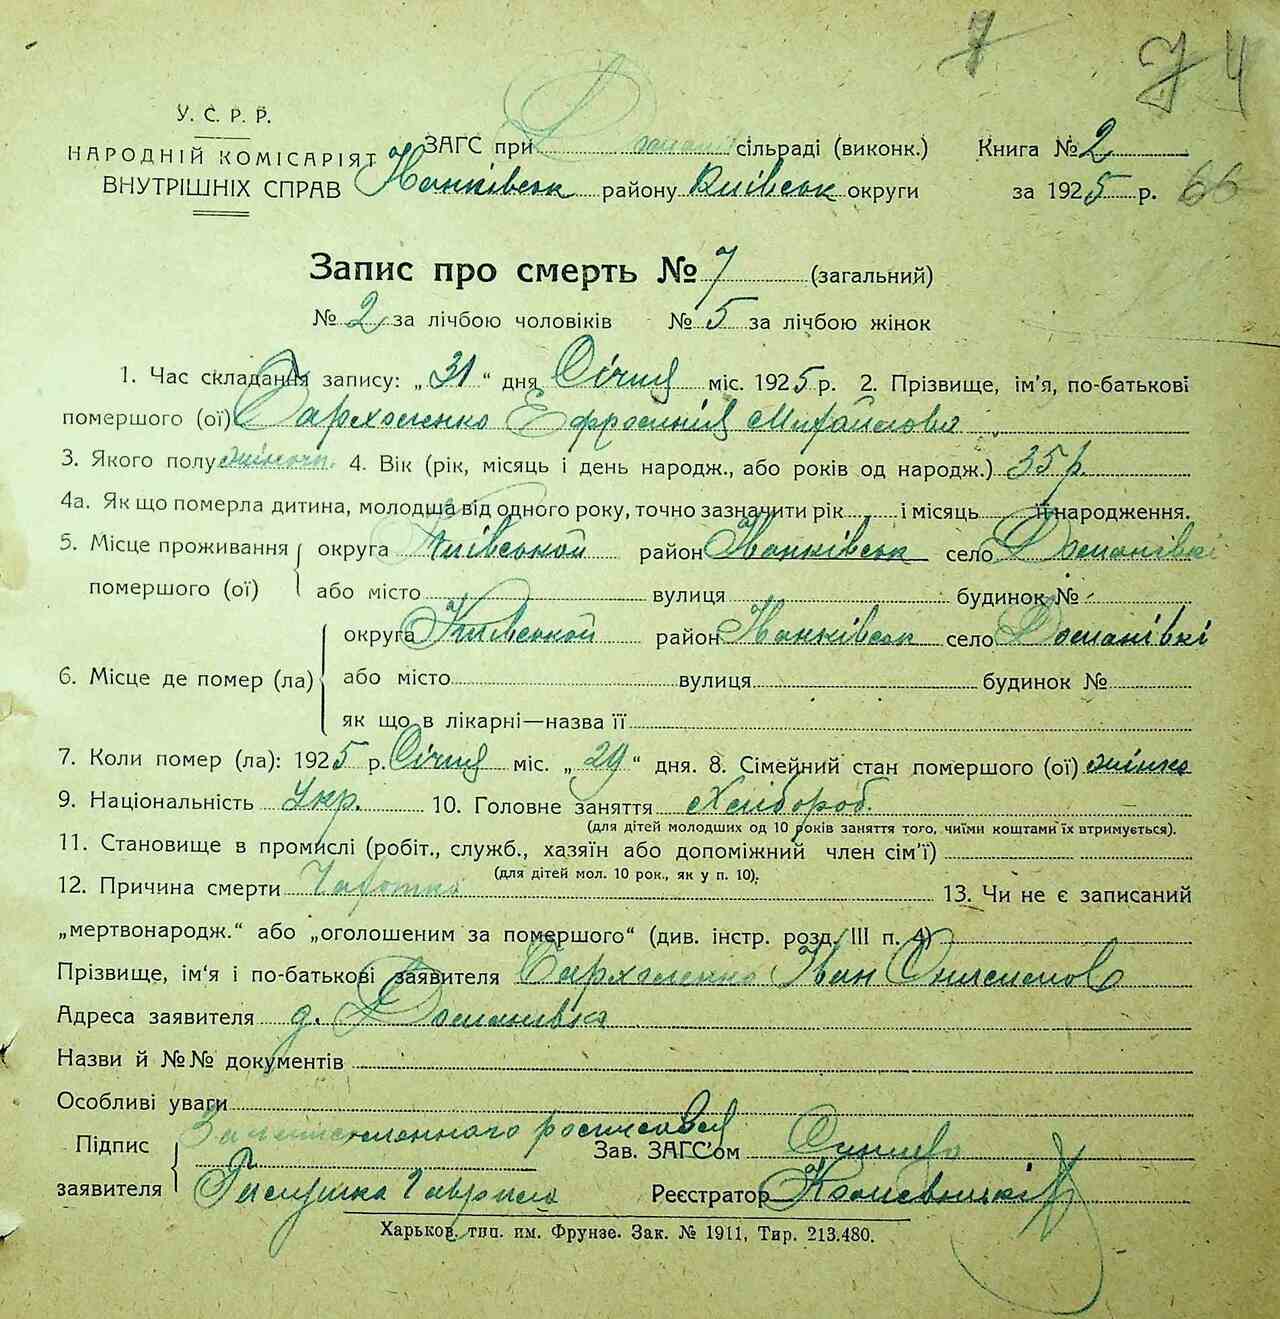 7 74
У. С. Р. Р.
НАРОДНІЙ КОМІСАРІЯТ
ВНУТРІШНІХ СПРАВ
ЗАГС при сільраді (виконк.) Книга № 2
Іванківськ району Київськ округи за 1925 р. 66
Запис про смерть № 7 (загальний)
№ 2 за лічбою чоловіків № 5 за лічбою жінок
1. Час складання запису: „31“ дня Січня міс. 1925 р. 2. Прізвище, ім’я, по-батькові
помершого (ої) Пархоменко Ефросинія Михайлова
3. Якого полу жіноч. 4. Вік (рік, місяць і день народж., або років од народж.) 35 р.
4а. Як що померла дитина, молодша від одного року, точно зазначити рік і місяць її народження.
5. Місце проживання помершого (ої) округа Київськой район Іванківськ село
або місто вулиця будинок №
6. Місце де помер (ла) округа Київськой район Іванківськ село
або місто вулиця будинок №
як що в лікарні—назва її
7. Коли помер (ла): 1925 р. Січня міс. „29“ дня. 8. Сімейний стан помершого (ої) жінка
9. Національність Укр. 10. Головне заняття Хлібороб.
(для дітей молодших од 10 років заняття того, чиїми коштами їх втримується).
11. Становище в промислі (робіт., служб., хазяїн або допоміжний член сім’ї)
(для дітей мол. 10 рок., як у п. 10).
12. Причина смерти 13. Чи не є записаний
„мертвонародж.“ або „оголошеним за помершого“ (див. інстр. розд. III п. 4)
Прізвище, ім‘я і по-батькові заявителя Пархоменко Іван
Адреса заявителя д.
Назви й №№ документів
Особливі уваги
Підпис заявителя росписався
Зав. ЗАГС’ом
Гаврило Реєстратор
Харьков, тип. им. Фрунзе. Зак. № 1911, Тир. 213.480.